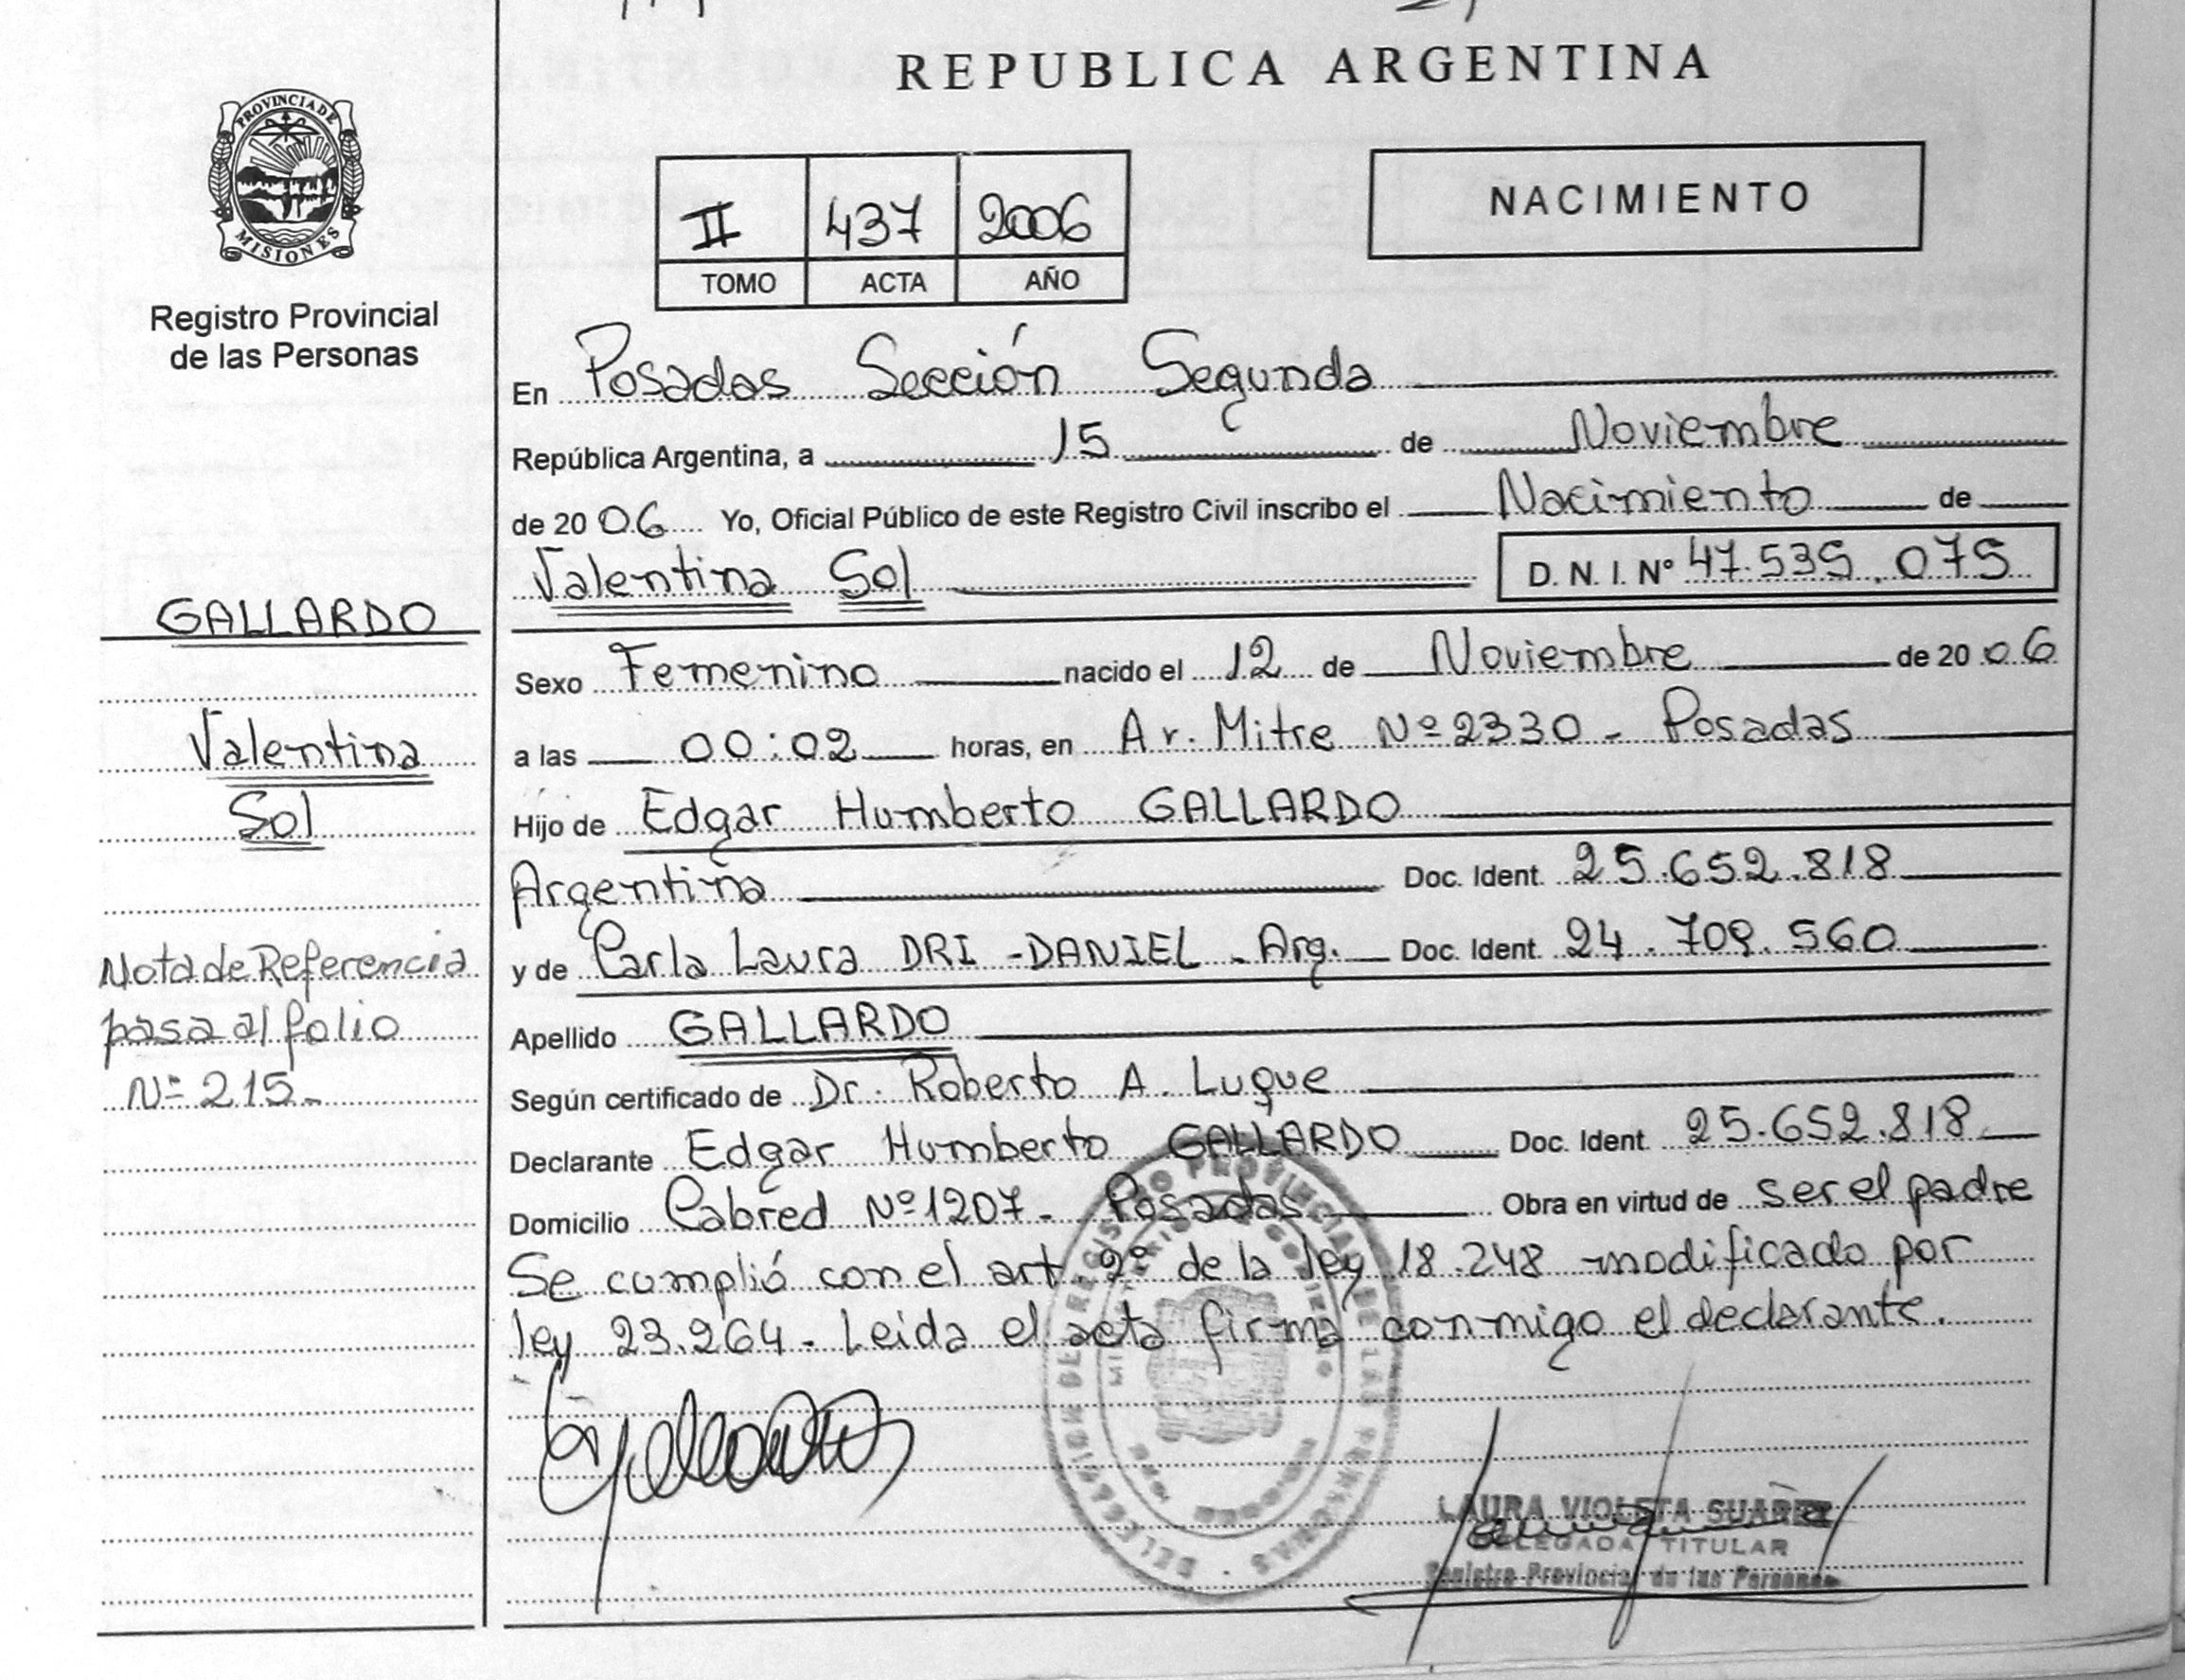 REPUBLICA ARGENTINA
PROVINCIA DE
MISIONES
Registro Provincial
de las Personas
II 437 2006
TOMO ACTA AÑO
NACIMIENTO
En Posadas Sección Segunda
República Argentina, a 15 de Noviembre
de 2006 Yo, Oficial Público de este Registro Civil inscribo el Nacimiento de
Valentina Sol D. N. I. Nº 47.535.075
GALLARDO
Valentina
Sol
Nota de Referencia
pasa al folio
Nº 215-
Sexo Femenino nacido el 12 de Noviembre de 2006
a las 00:02 horas, en Av. Mitre Nº 2330 - Posadas
Hijo de Edgar Humberto GALLARDO
Argentina Doc. Ident. 25.652.818
y de Carla Laura DRI -DANIEL - Arg. Doc. Ident. 24.709.560
Apellido GALLARDO
Según certificado de Dr. Roberto A. Luque
Declarante Edgar Humberto GALLARDO Doc. Ident. 25.652.818
Domicilio Cabred Nº 1207- Posadas Obra en virtud de ser el padre
Se cumplió con el art. 2º de la ley 18.248 modificado por
ley 23.264 - Leida el acta firma conmigo el declarante.
LAURA VIOLETA SUAREZ
DELEGADA TITULAR
Registro Provincial de las Personas